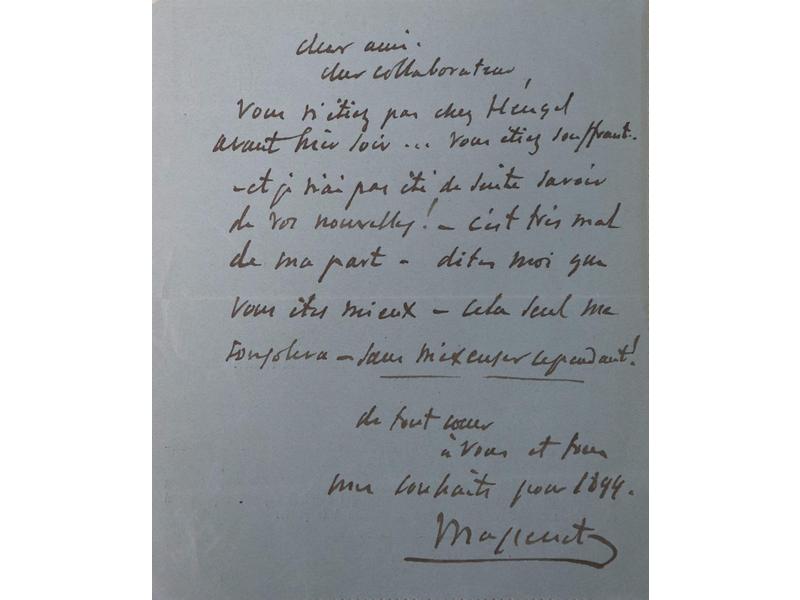 cher ami.
cher collaborateur,
Vous n'étiez pas chez Heugel
avant hier soir ... Vous étiez souffrant.
- et je n'ai pas été de suite savoir
de vos nouvelles! - c'est très mal
de ma part - dites moi que
vous êtes mieux - cela seul me
consolera - sans m'excuser cependant!
de tout cœur
à vous et tous
mes souhaits pour 1899.
Massenet